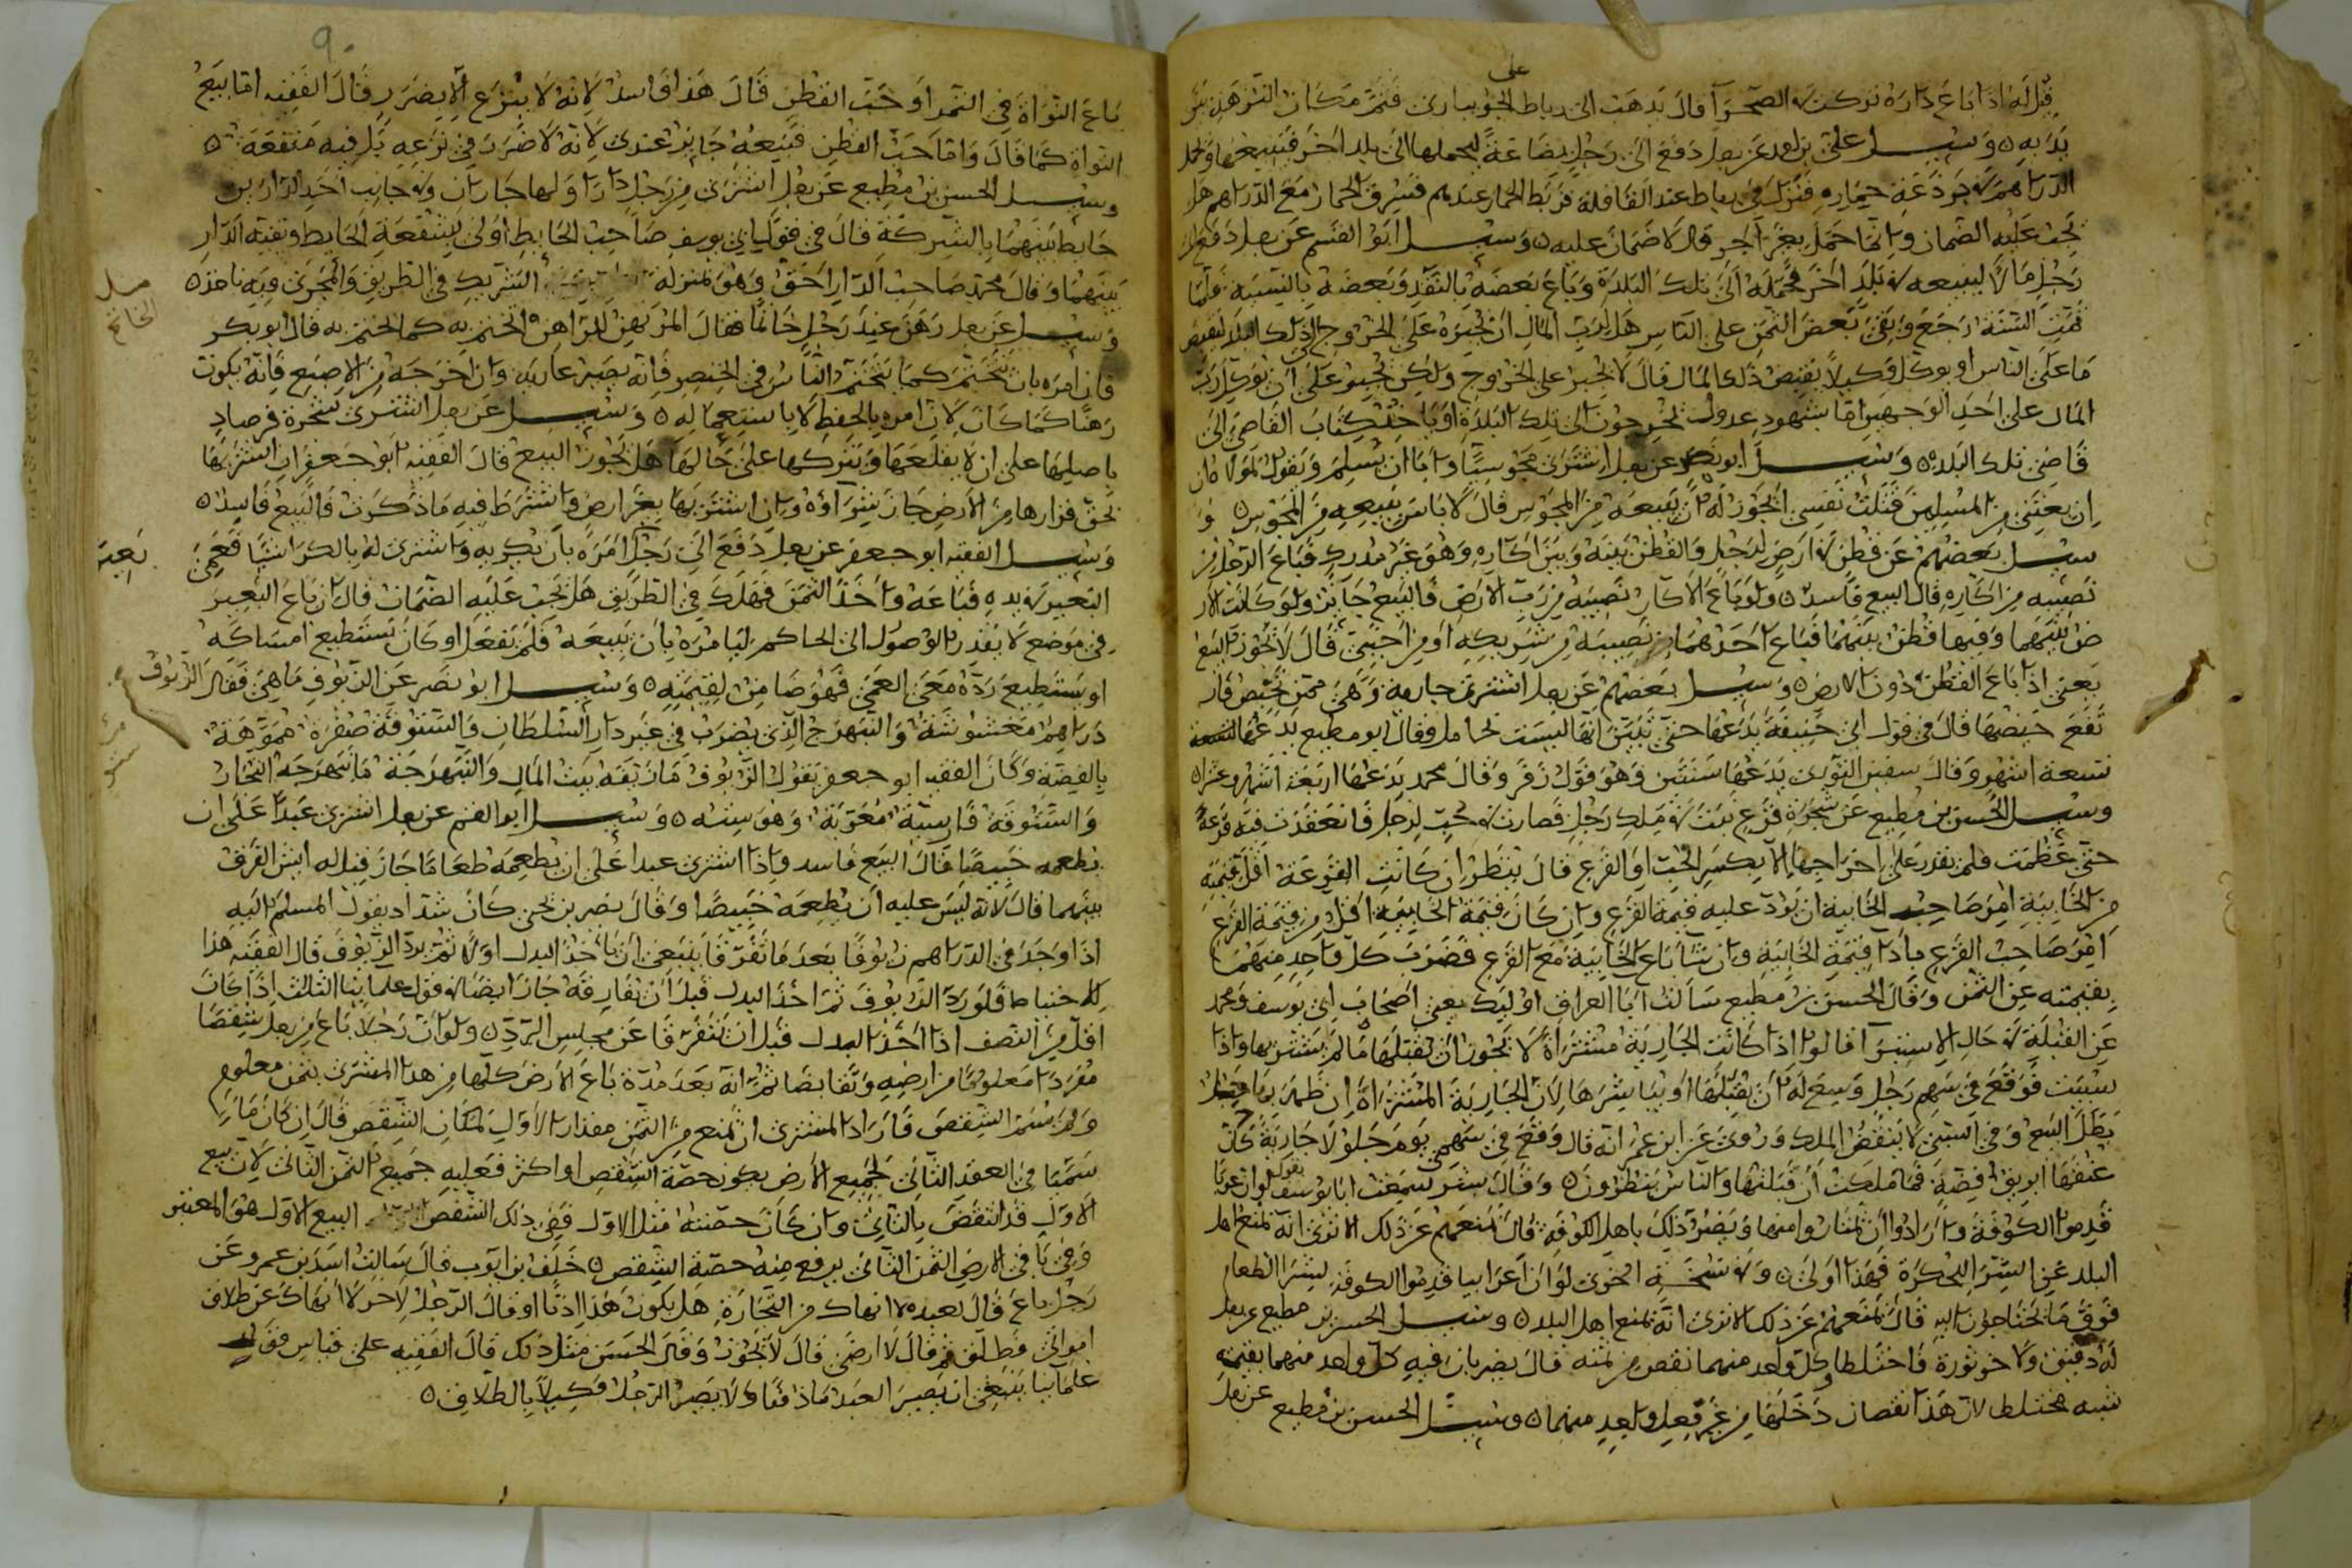 قيل له اذا باع داره تركت الصحرآ قال يذهب الى رباط
وسئل على بن احمد عن رجل دفع الى رجل بضاعة ليحملها الى بلد اخر فيبيعها
الدراهم في برذعة حماره فنزل في رباط عند القافلة فربط الحمار عندهم فسرق الحمار مع الدراهم هل
يجب عليه الضمان وانما حمل بغير اجر قال لا ضمان عليه وسئل ابو القسم عن رجل دفع الى
رجل مالا ليبيعه في بلد اخر فحمله الى تلك البلدة وباع بعضه بالنقد وبعضه بالنسية فلما
تمت السنة رجع وبقى بعض الثمن على الناس هل لرب المال ان يجبره على الخروج الى ذلك
ما على الناس او يوكل وكيلا يقبض ذلك المال قال لا يجبر على الخروج ولكن يجبر على ان يوكل رب
المال على احد الوجهين اما بشهود عدول يخرجون الى تلك البلدة او باخذ كتاب القاضى الى
قاضى تلك البلدة وسئل ابو نصر عن رجل اشترى مجوسيا وابا ان يسلم ويقول
ان بعتنى من المسلمين قتلت نفسى ايجوز له ان يبيعه من المجوس قال لا باس ببيعه من المجوس و
سئل بعضهم عن قطن في ارض لرجل والقطن بينه وبين اكاره وهو غير مدرك فباع الرجل
نصيبه من اكاره قال البيع فاسد ولو باع الاكار نصيبه من رب الارض فالبيع جائز ولو كانت الار
ض بينهما وفيها قطن بينهما فباع احدهما نصيبه من شريكه او من اجنبى قال لا يجوز البيع
يعنى اذا باع القطن دون الارض وسئل بعضهم عن رجل اشترى جارية وهى ممن تحيض فار
تفع حيضها قال فى قول ابى حنيفة يدعها حتى تبين انها ليست بحامل وقال ابو مطيع يدعها
تسعة اشهر وقال سفين الثورى يدعها سنتين وهو قول زفر وقال محمد يدعها اربعة اشهر وعشرا
وسئل الحسن بن مطيع عن شجرة قرع نبت في ملك رجل فصارت في حب لرجل فانعقدت فيه قرعة
حتى عظمت فلم يقدر على اخراجها الا بكسر الحب او القرع قال ينظر ان كانت القرعة اقل قيمة
من الخابية امر صاحب الخابية ان يؤد عليه قيمة القرع وان كان قيمة الخابية اقل من قيمة القرع
امر صاحب القرع باداء قيمة الخابية وان شاآ باع الخابية مع القرع فضرب كل واحد منهما
بقيمته عن الثمن وقال الحسن بن مطيع سألت ابا العراف اوليك يعنى اصحاب ابى يوسف ومحمد
عن القبلة في حال الاستبرآ قالوا اذا كانت الجارية مشتراة لا يجوز ان يقبلها ما لم يستبريها واذا
سبيت فوقع فى سهم رجل وسع له ان يقبلها او يباشرها لان الجارية المشتراة ان ظهر
بطل البيع وفى السبى لا ينقض الملك وروى عن ابن عمر انه قال وقع فى سهمى يوم جلولا جارية كان
عنقها ابريق فضة فما ملكت ان قبلتها والناس ينظرون وقال سمعت ابا يوسف يقول
قدموا الكوفة وارادوا ان يمتاروا منها ويضر ذلك باهل الكوفة قال نمنعهم عن ذلك الا ترى انه نمنع اهل
البلد عن الحكرة فهذا اولى وفى نسخة اخرى لو ان اعرابيا قدموا الكوفة الطعام
فوق ما يحتاجون اليه قال نمنعهم عن ذلك الا ترى انه نمنع اهل البلد وسئل الحسن بن مطيع عن رجل
له دقيق فاختلطا وكل واحد منهما نقص من ثمنه قال يضربان فيه كل واحد منهما بقيمته
شبه مختلط لان هذا نقصان دخلها من غير فعل واحد منهما وسئل الحسن بن مطيع عن رجل
باع النواة فى التمر او حب القطن قال هذا فاسد لانه لا ينزع الا بضرر قال الفقيه اما بيع
النواة كما قال واما حب القطن فبيعه جايز عندى لانه لا ضرر فى نزعه بل فيه منفعة
وسئل الحسن بن مطيع عن رجل اشترى من رجل دارا ولها جاران وفي جانب احد الدارين
حايط بينهما بالشركة قال فى قول ابى يوسف صاحب الحايط اولى بشفعة الحايط وبقية الدار
بينهما وقال محمد صاحب الدار احق وهو بمنزلة الشريك فى الطريق والمجرى وبه ناخذ
وسئل عن رجل رهن عند رجل خاتما فقال المرتهن للراهن اتختم به كما اتختم به قال ابو بكر
فان امره بان يتختم كما يتختم الناس فى الخنصر فانه يصير عارية وان اخرجه من الاصبع فانه يكون
رهنا كما كان لان امره بالحفظ لا باستعماله وسئل عن رجل اشترى شجرة فرصاد
باصلها على ان لا يقلعها ويتركها على حالها هل يجوز البيع قال الفقيه ابو جعفر ان اشتريها
بحق قرارها من الارض جاز شراؤه وان اشتريها بغير ارض واشترط فيه ما ذكرت فالبيع فاسد
وسئل الفقيه ابو جعفر عن رجل دفع الى رجل امره بان يكريه واشترى له بالكرا شيا فعمى
البعير في يده فباعه واخذ الثمن فهلك فى الطريق هل يجب عليه الضمان قال ان باع البعير
فى موضع لا يقدر الوصول الى الحاكم ليامره بان يبيعه فلم يفعل او كان يستطيع امساكه
او يستطيع رده مع العمى فهو ضامن لقيمته وسئل ابو نصر عن الزيوف ما هى فقال الزيوف
دراهم مغشوشة والنبهرج الذى يضرب فى غير دار السلطان والستوقة صفرة مموهة
بالفضة وكان الفقيه ابو جعفر يقول الزيوف ما زيفه بيت المال والنبهرجة ما نبهرجه التجار
والستوقة فارسية معربة وهو سته وسئل ابو القسم عن رجل اشترى عبدا على ان
يطعمه خبيصا قال البيع فاسد واذا اشترى عبدا على ان يطعمه طعاما جاز قيل له ايش الفرق
بينهما قال لانه ليس عليه ان يطعمه خبيصا وقال نصر بن يحيى كان شداد يقول المسلم اليه
اذا وجد فى الدراهم زيوفا بعد ما تفرقا ينبغى ان ياخذ البدل اولا ثم يرد الزيوف قال الفقيه هذا
للاحتياط فلو رد الزيوف ثم اخذ البدل قبل ان يفارقه جاز ايضا في قول علماينا الثلث اذا كان
اقل من النصف اذا اخذ البدل قبل ان يتفرقا عن مجلس الرد ولو ان رجلا باع من رجل شقصا
مفردا معلوما من ارضه وتقابضا ثم انه بعد مدة باع الارض كلها من هذا المشترى بثمن معلوم
ولم الشقص فاراد المشترى ان يمنع من الثمن مقدار الاول لمكان الشقص قال ان كان ما
سميا فى العقد الثانى لجميع الارض يكون حصة الشقص او اكثر فعليه جميع الثمن الثانى لان بيع
الاول قد انتقض بالثانى وان كان حصته مثل الاول ففى ذلك الشقص البيع الاول هو المعتبر
وفى باقى الارض الثمن الثانى يرفع منه حصة الشقص خلف بن ايوب قال سالت اسد بن عمرو عن
رجل باع قال لعبده لا انهاك من التجارة هل يكون هذا اذنا او قال الرجل لاخر لا انهاك عن طلاق
امراتى فطلق ثم قال لا ارضى قال لا يجوز وقال الحسن مثل ذلك قال الفقيه على قياس قول
علماينا ينبغى ان يصير العبد ماذونا ولا يصير الرجل وكيلا بالطلاق